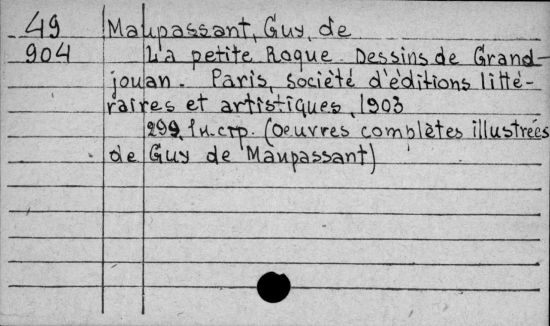 49 Maupassant, Guy, de
904 La petite Roque. Dessins de Grand-
jouan. Paris, société d'éditions litté-
raires et artistiques, 1903
299, 1н.стр. (Oeuvres complètes illustrées
de Guy de Maupassant)